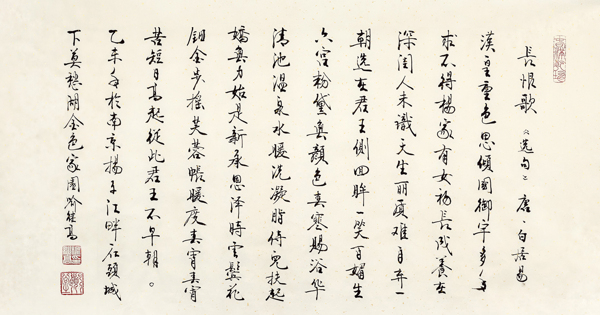 長恨歌《选句》唐·白居易
漢皇重色思傾國御宇多年
求不得楊家有女初長成養在
深闺人未識天生丽质難自弃一
朝选在君王側回眸一笑百媚生
六宫粉黛無颜色春寒賜浴华
清池温泉水暖洗凝脂侍兒扶起
嬌無力始是新承恩泽時雲鬓花
钿金步摇芙蓉帳暖度春宵春宵
苦短日高起從此君王不早朝。
乙未年於南京揚子江畔石頭城
下莫愁湖金色家園